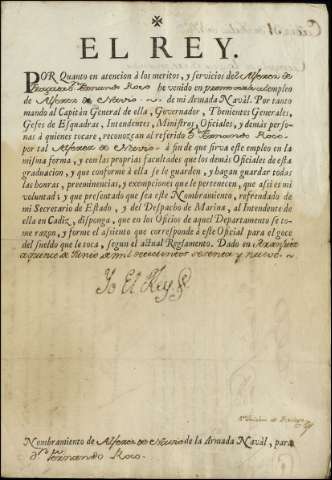 EL REY.
POR Quanto en atencion à los meritos, y servicios del Alferez de
Fragata Dn. Fernando Roco he venido en promoverle al empleo
de Alferez de Navio de mi Armada Navàl. Por tanto
mando al Capitàn General de ella, Governador, Thenientes Generales,
Gefes de Esquadras, Intendentes, Ministros, Oficiales, y demàs perso-
nas à quienes tocare, reconozcan al referido Dn. Fernando Roco
por tal Alferez de Navio à fin de que sirva este empleo en la
misma forma, y con las proprias facultades que los demàs Oficiales de esta
graduacion, y que conforme à ella se le guarden, y hagan guardar todas
las honras, preeminencias, y exempciones que le pertenecen, que asi es mi
voluntad; y que presentado que sea este Nombramiento, refrendado de
mi Secretario de Estado, y del Despacho de Marina, al Intendente de
ella en Cadiz, disponga, que en los Oficios de aquel Departamento se to-
me razon, y forme el asiento que corresponde à este Oficial para el goce
del sueldo que le toca, segun el actual Reglamento. Dado en Aranjuez
a quince de Junio de mil setecientos sesenta y nueve.
Yo El Rey
Nombramiento de Alferez de Navio de la Armada Navàl, para
Dn. Fernando Roco.